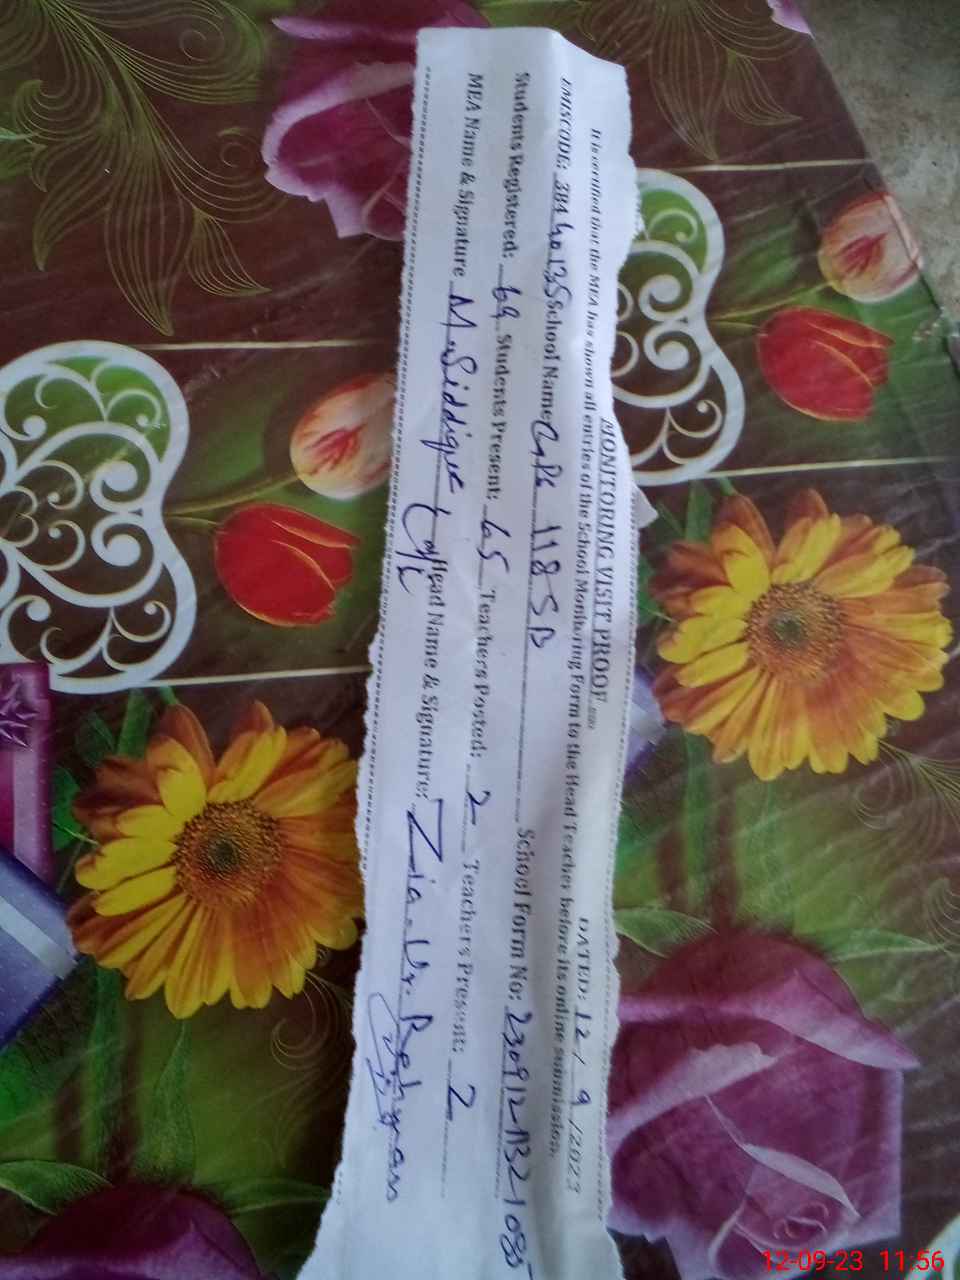 MONITORING VISIT PROOF
DATED: 12 / 9 /2023
It is certified that the MEA has shown all entries of the School Monitoring Form to the Head Teacher before its online submission.
EMISCODE: 38440135 School Name GPS 118 SB School Form No: 230912113210
Students Registered: 69 Students Present: 65 Teachers Posted: 2 Teachers Present: 2
MEA Name & Signature M. Siddique Head Name & Signature: Zia-Ur-Rehman
12-09-23 11:56